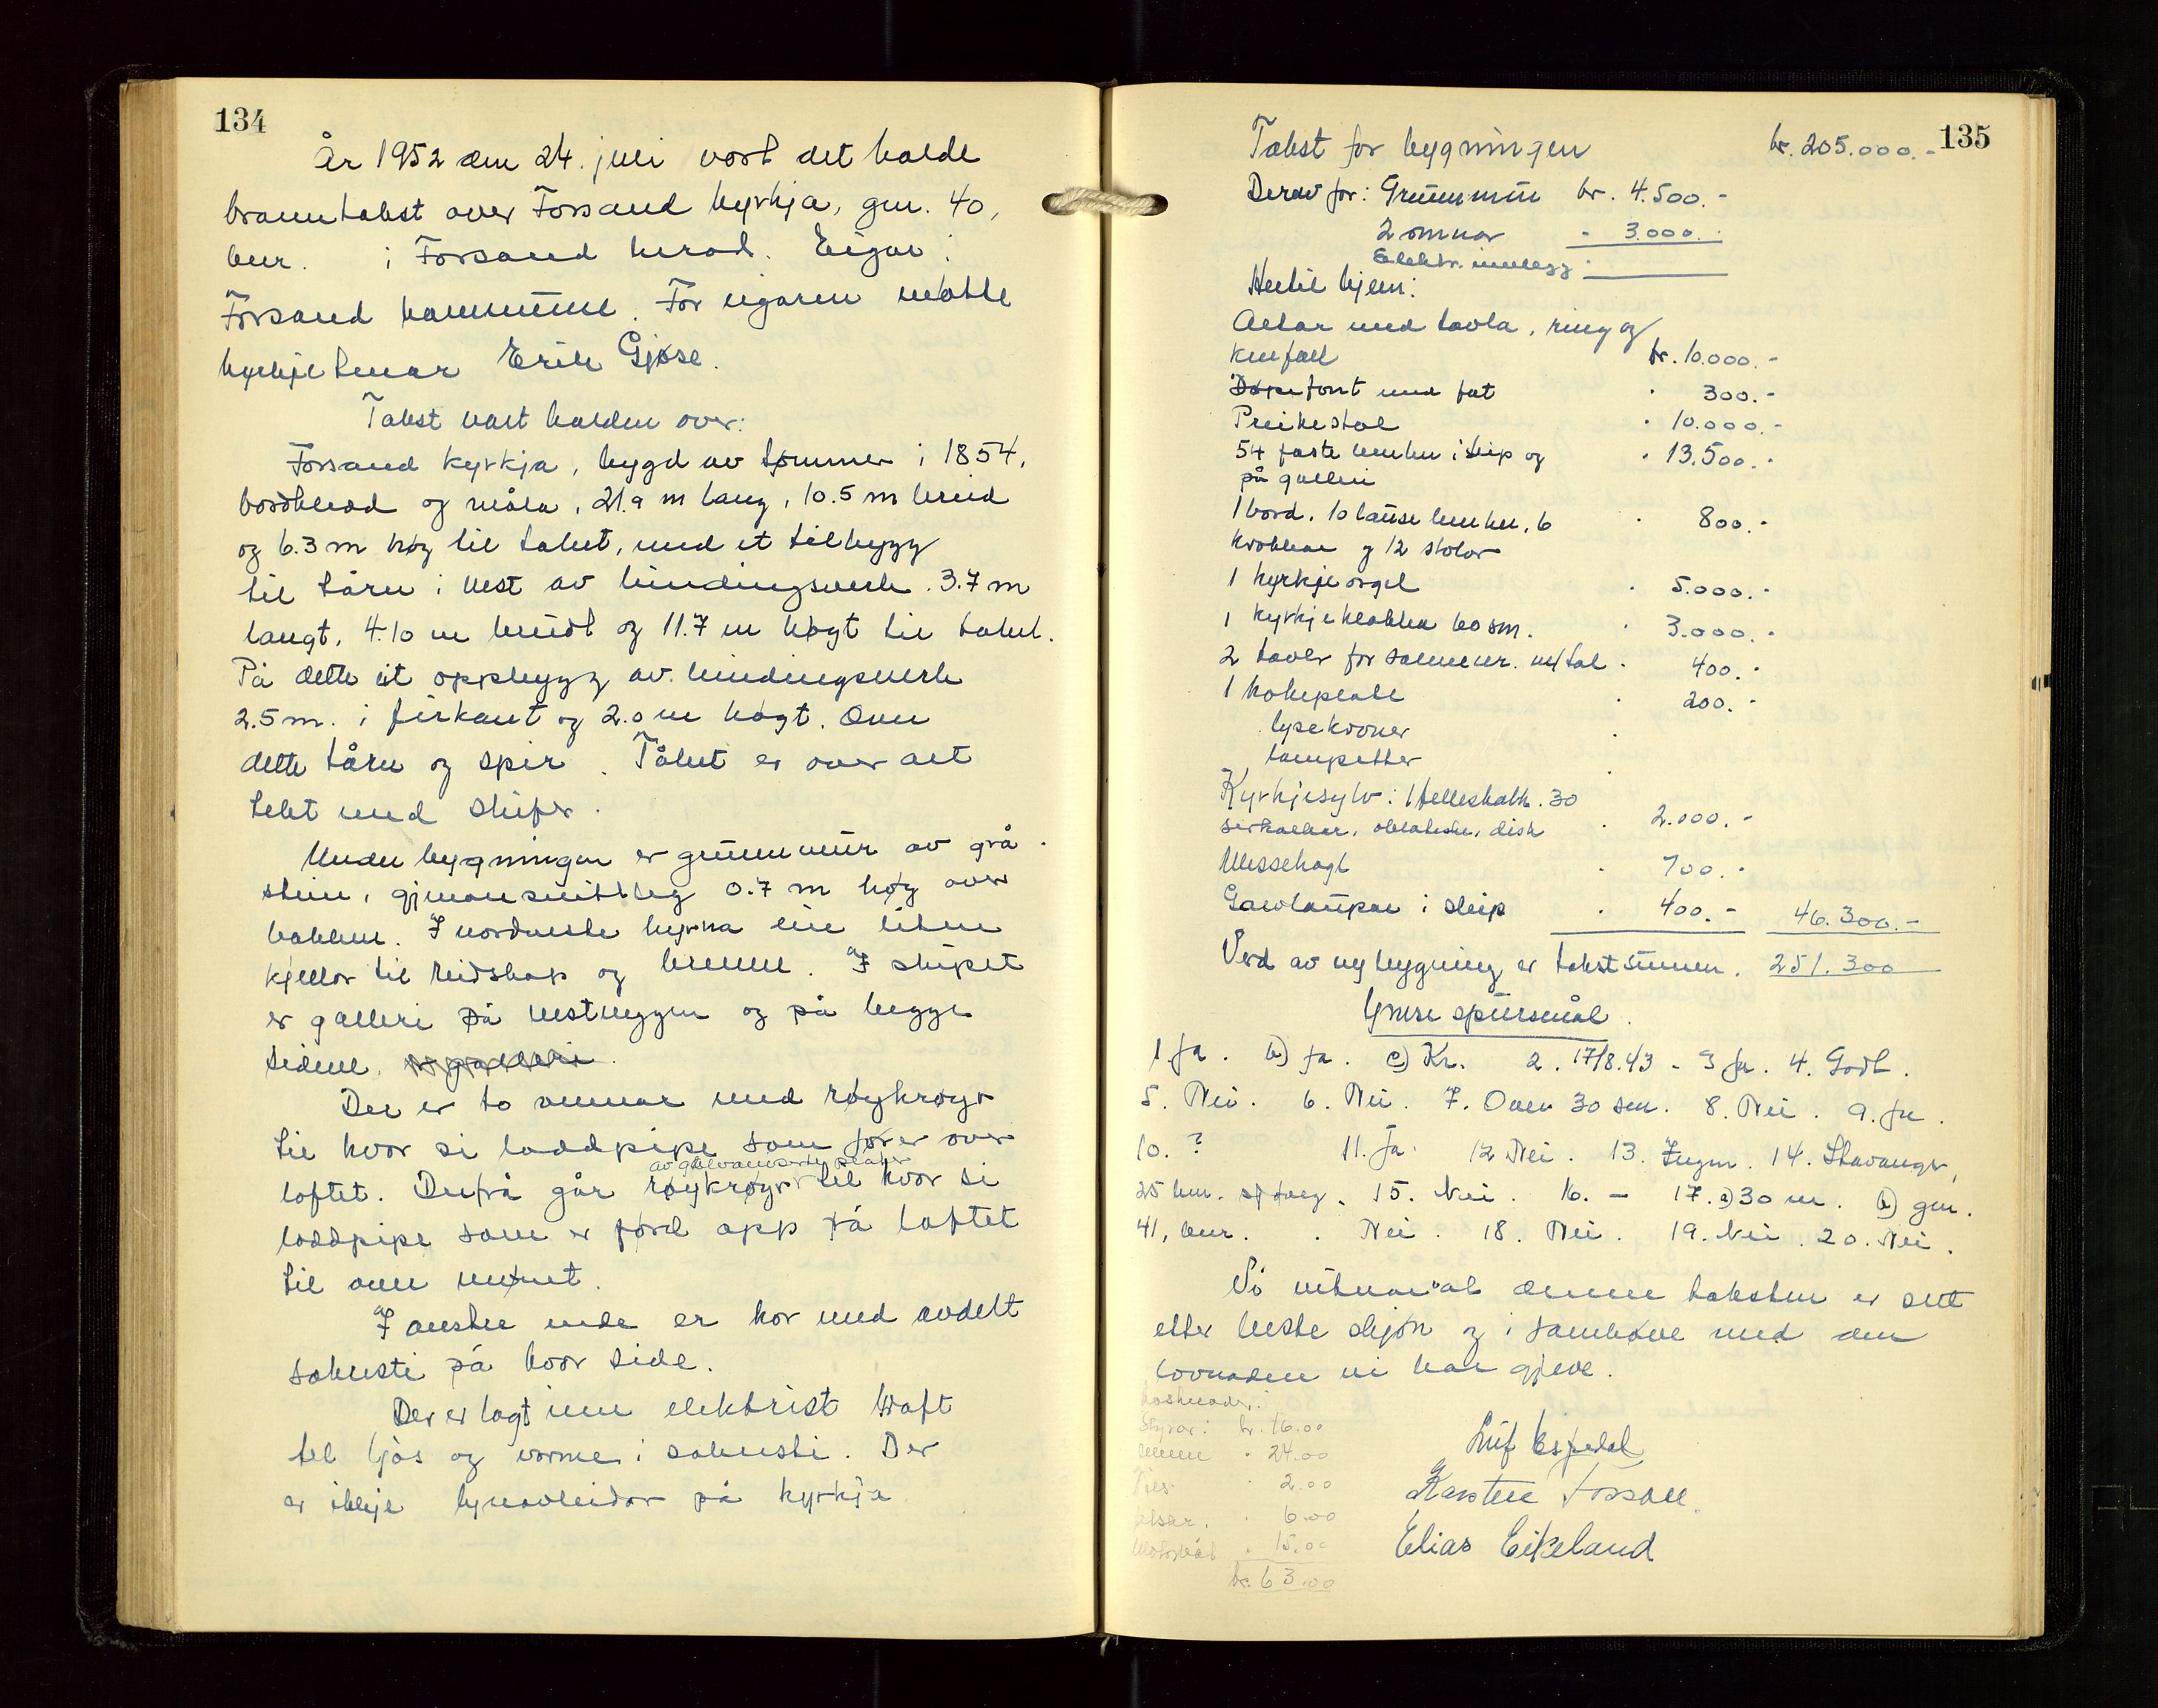 134
År 1952 den 24. juli vart det halde
branntakst over Forsand kyrkja, gnr. 40,
bnr. i Forsand herad. Eigar:
Forsand kommune. For eigaren møtte
kyrkjetenar Erik Gjøse.
Takst vart halden over:
Forsand kyrkja, bygd av tømmer i 1854,
bordkledd og måla, 21.9 m lang, 10.5 m breid
og 6.3 m høg til taket, med et tilbygg
til tårn i vest av bindingsverk. 3.7 m
langt, 4.10 m breidt og 11.7 m høgt til taket.
På dette eit oppbygg av bindingsverk
2.5 m. i firkant og 2.0 m høgt. Over
dette tårn og spir. Taket er over alt
tekt med skifer.
Under bygningen er grunnmur av grå-
stein, gjenomsnittleg 0.7 m høg over
bakken. I nordvestre hyrna ein liten
kjellar til reidskap og brenne. I skipet
er galleri på vestveggen og på begge
sidene. og galleri.
Der er to omnar med røykrøyr
til kvar si loddpipe som fører over
av galvaniserte plater
loftet. Derfrå går røykrøyr til kvar si
loddpipe som er førd opp på loftet
til over mønet.
I austre ende er kor med avdelt
sakresti på kvar side.
Der er lagt inn elektrisk kraft
til ljos og varme i sakresti. Der
er ikkje lynavleidar på kyrkja
135
Takst for bygningen kr. 205.000.-
Derav for: Grunnmur kr. 4.500.-
2 omnar " 3.000.-
Elektr. innlegg "
Hertil kjem:
Altar med tavla, ring og
knefall kr. 10.000.-
Døpefont med fat " 300.-
Preikestol " 10.000.-
54 faste benker i skip og " 13.500.-
på galleri
1 bord, 10 lause benker, 6 " 800.-
krakkar og 12 stolar
1 kyrkjeorgel " 5.000.-
1 kyrkjeklokke 60 sm. " 3.000.-
2 tavler for salmenr. m/tal " 400.-
1 kokeplate " 200.-
lysekroner "
lampetter
Kyrkjesylv: 1 felleskalk. 30
serkalker, oblateske, disk " 2.000.-
Messehagl " 700.-
Gavlampar i skip " 400.- 46.300.-
Verd av nybygning er takstsummen. 251.300
Ymse spursmål.
1 Ja. b) Ja. c) Kr. 2. 17/8.43 - 3 Ja. 4. Godt.
5. Nei. 6. Nei. 7. Over 30 sm. 8. Nei. 9. Ja.
10. ? 11. Ja. 12 Nei. 13. Ingen. 14. Stavanger,
25 km. sjøveg. 15. Nei. 16. - 17. a) 30 m. b) gnr.
41, bnr. . Nei. 18. Nei. 19. Nei. 20. Nei.
Vi vitnar at denne taksten er sett
etter beste skjøn og i samhøve med den
lovnaden vi har gjeve.
kostnader:
Styrar: kr. 16.00
menn " 24.00
" 2.00
" 6.00
" 15.00
kr. 63.00
Leif Espedal
Karsten Fossan
Elias Eikeland